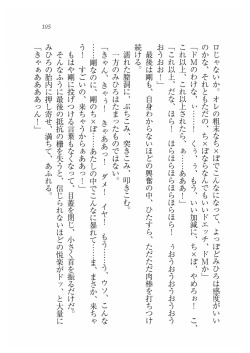 105
口じゃないか。オレの粗末なち×ぽでこんなになって、よっぽどみひろは感度がいい
のかな。それともただの、ち×ぽならなんでもいいドエッチ、ドMか」
「ドMのわけな、……！　くぅ、うもう、いい加減に、ち×ぽ、やめろぉ！　こ、
これ以上、これ以上されたら、ぁ……ぁあああ！」
「これ以上、だな、ほら！　ほらほらほら！　うぉおうおおうおう
うおおお！」
最後は剛も、自身わからないほどの興奮の中、ひたすら、ただただ肉棒を打ちつけ
続け、
濡れた膣洞に、ぶちこみ、突きこみ、叩きこむ。
一方のみひろはたまったものではない。
「きゃん、きゃぅ！　きゃああっ！　ダメー！　イヤー！　もう……う、ウソ、こんな
……剛なのに、剛のち×ぽ……あたしの中でこんなに暴れて……ま、まさか、来ちゃ
う……すごいの、来ちゃうからああっ！」
もはや剛に投げつける言葉もなくなって、ただ目蓋を閉じ、小さく首を振るだけだ。
そんなふうに最後の抵抗の柵を失うと、信じられないほどの悦楽がドッ、と大量に
みひろの胎内に押し寄せ、満ちて、あふれる。
「きゃああああっんー！」